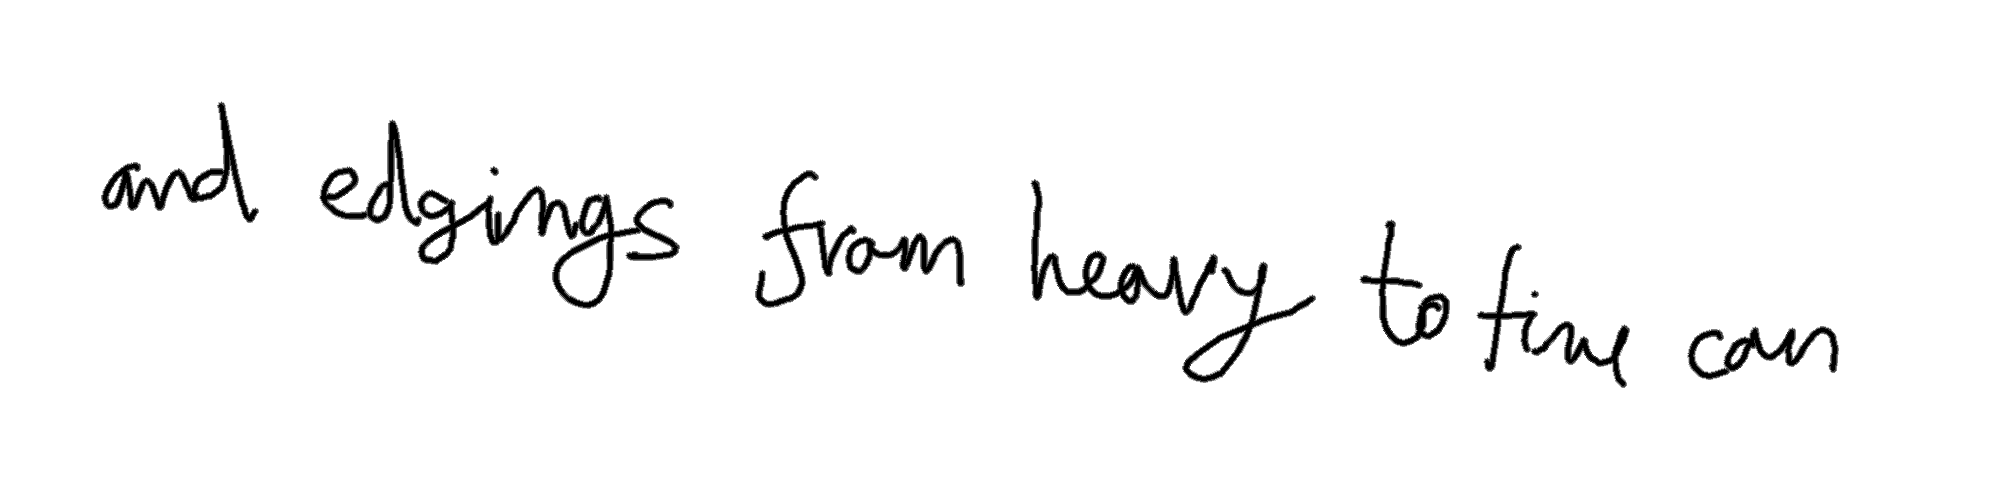 and edgings from heavy to fine can